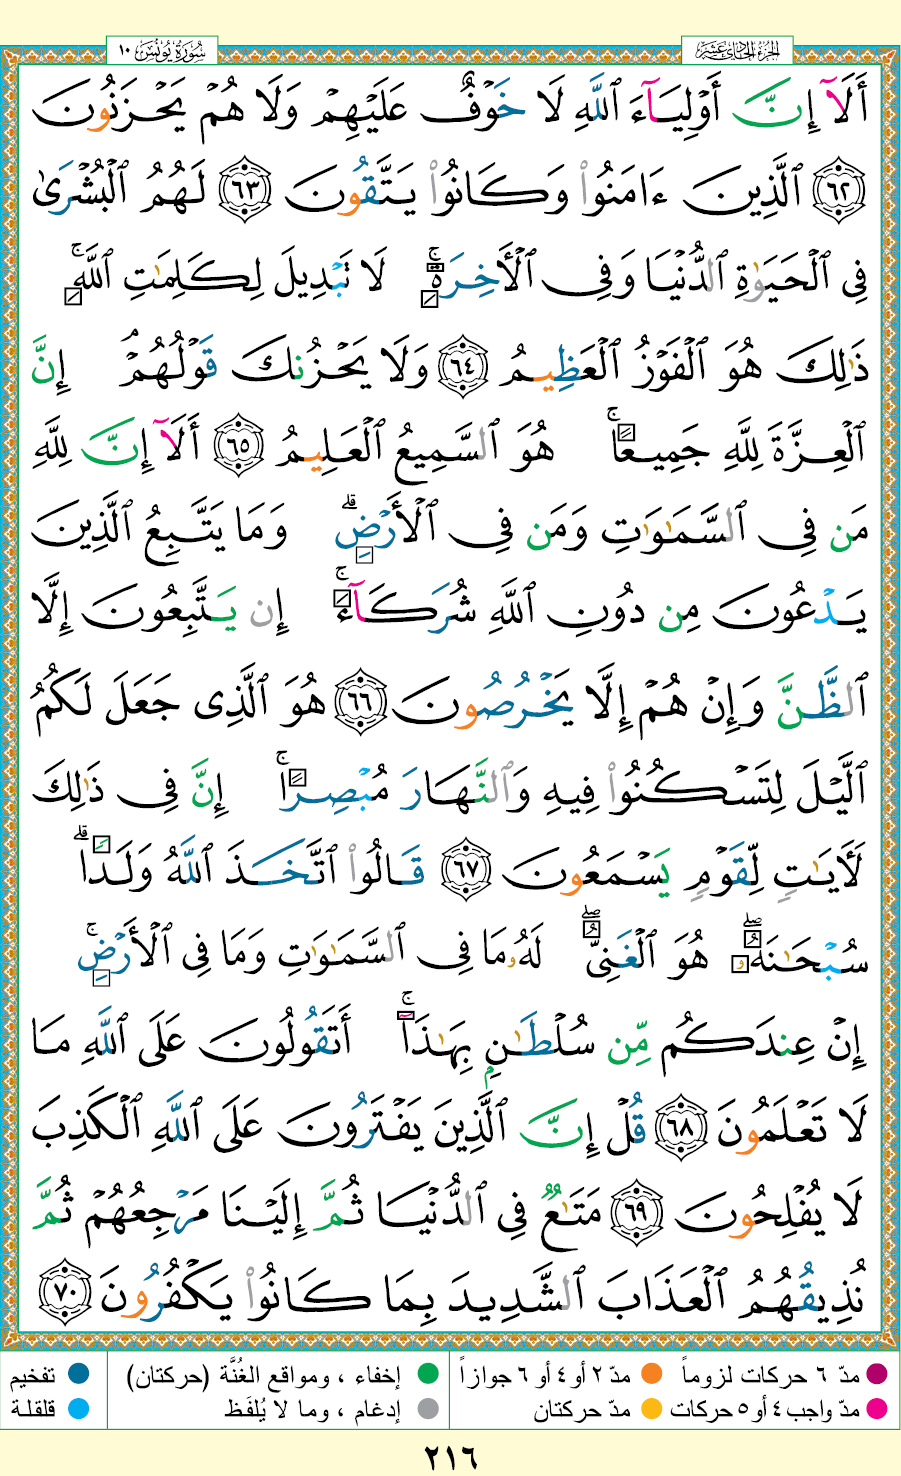 الجزء الحادي عشر سورة يونس ١٠
أَلَآ إِنَّ أَوْلِيَآءَ ٱللَّهِ لَا خَوْفٌ عَلَيْهِمْ وَلَا هُمْ يَحْزَنُونَ
﴿٦٢﴾ ٱلَّذِينَ ءَامَنُوا۟ وَكَانُوا۟ يَتَّقُونَ ﴿٦٣﴾ لَهُمُ ٱلْبُشْرَىٰ
فِى ٱلْحَيَوٰةِ ٱلدُّنْيَا وَفِى ٱلْأَخِرَةِ ۚ لَا تَبْدِيلَ لِكَلِمَٰتِ ٱللَّهِ ۚ
ذَٰلِكَ هُوَ ٱلْفَوْزُ ٱلْعَظِيمُ ﴿٦٤﴾ وَلَا يَحْزُنكَ قَوْلُهُمْ ۘ إِنَّ
ٱلْعِزَّةَ لِلَّهِ جَمِيعًا ۚ هُوَ ٱلسَّمِيعُ ٱلْعَلِيمُ ﴿٦٥﴾ أَلَآ إِنَّ لِلَّهِ
مَن فِى ٱلسَّمَٰوَٰتِ وَمَن فِى ٱلْأَرْضِ ۗ وَمَا يَتَّبِعُ ٱلَّذِينَ
يَدْعُونَ مِن دُونِ ٱللَّهِ شُرَكَآءَ ۚ إِن يَتَّبِعُونَ إِلَّا
ٱلظَّنَّ وَإِنْ هُمْ إِلَّا يَخْرُصُونَ ﴿٦٦﴾ هُوَ ٱلَّذِى جَعَلَ لَكُمُ
ٱلَّيْلَ لِتَسْكُنُوا۟ فِيهِ وَٱلنَّهَارَ مُبْصِرًا ۚ إِنَّ فِى ذَٰلِكَ
لَأَيَٰتٍ لِّقَوْمٍ يَسْمَعُونَ ﴿٦٧﴾ قَالُوا۟ ٱتَّخَذَ ٱللَّهُ وَلَدًا ۗ
سُبْحَٰنَهُۥ ۖ هُوَ ٱلْغَنِىُّ ۖ لَهُۥ مَا فِى ٱلسَّمَٰوَٰتِ وَمَا فِى ٱلْأَرْضِ ۚ
إِنْ عِندَكُم مِّن سُلْطَٰنٍۭ بِهَٰذَآ ۚ أَتَقُولُونَ عَلَى ٱللَّهِ مَا
لَا تَعْلَمُونَ ﴿٦٨﴾ قُلْ إِنَّ ٱلَّذِينَ يَفْتَرُونَ عَلَى ٱللَّهِ ٱلْكَذِبَ
لَا يُفْلِحُونَ ﴿٦٩﴾ مَتَٰعٌ فِى ٱلدُّنْيَا ثُمَّ إِلَيْنَا مَرْجِعُهُمْ ثُمَّ
نُذِيقُهُمُ ٱلْعَذَابَ ٱلشَّدِيدَ بِمَا كَانُوا۟ يَكْفُرُونَ ﴿٧٠﴾
مدّ ٦ حركات لزوماً مدّ ٢ أو ٤ أو ٦ جوازاً إخفاء ، ومواقع الغُنَّة (حركتان) تفخيم
مدّ واجب ٤ أو ٥ حركات مدّ حركتان إدغام ، وما لا يُلفَظ قلقلة
٢١٦